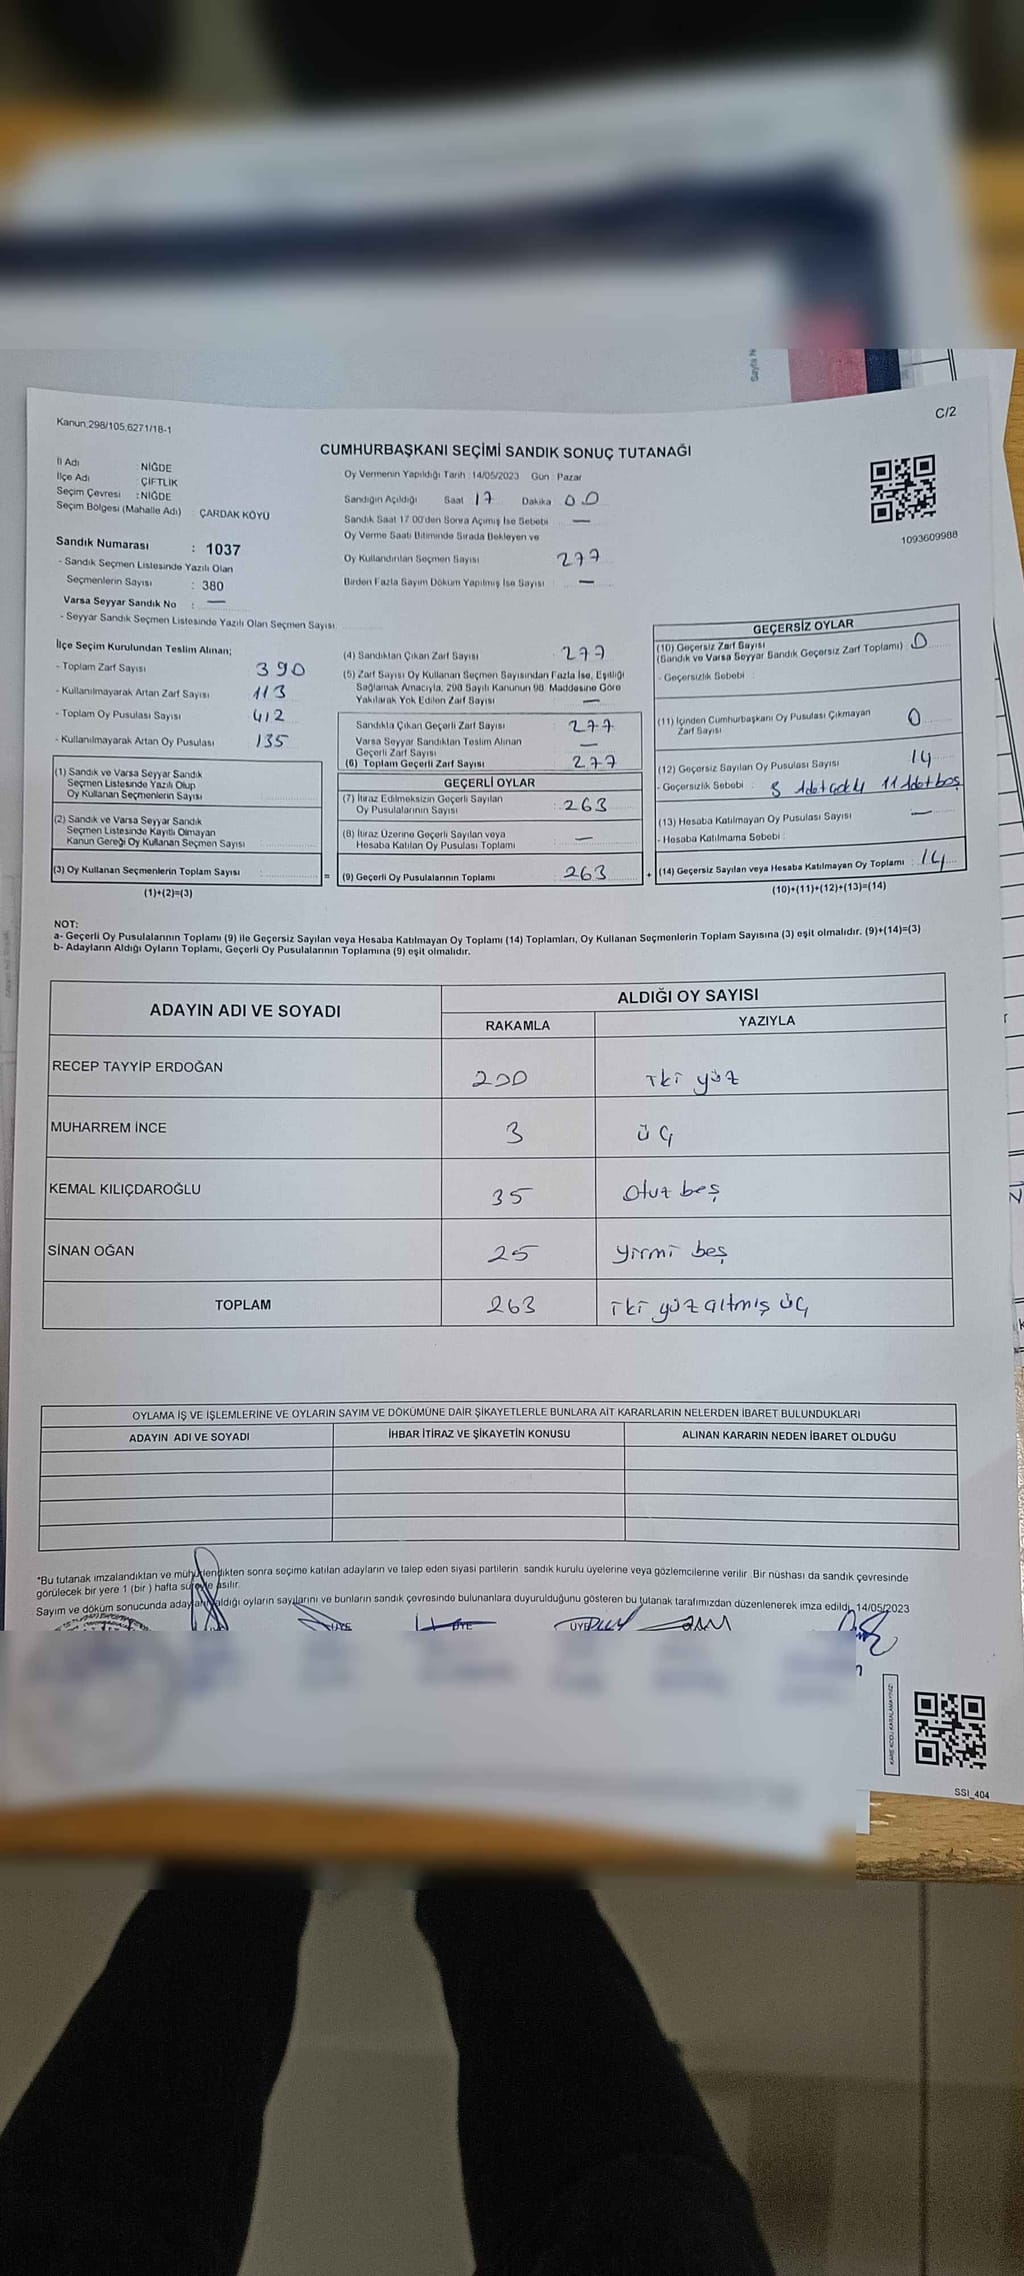 Kanun,298/105,6271/18-1
C/2
CUMHURBAŞKANI SEÇİMİ SANDIK SONUÇ TUTANAĞI
İl Adı : NİĞDE
İlçe Adı : ÇİFTLİK
Seçim Çevresi : NİĞDE
Seçim Bölgesi (Mahalle Adı) ÇARDAK KÖYÜ
Sandık Numarası : 1037
- Sandık Seçmen Listesinde Yazılı Olan
Seçmenlerin Sayısı : 380
Varsa Seyyar Sandık No : —
- Seyyar Sandık Seçmen Listesinde Yazılı Olan Seçmen Sayısı:
Oy Vermenin Yapıldığı Tarih : 14/05/2023 Gün : Pazar
Sandığın Açıldığı Saat 17 Dakika 00
Sandık Saat 17:00'den Sonra Açımış İse Sebebi —
Oy Verme Saati Bitiminde Sırada Bekleyen ve
Oy Kullandırılan Seçmen Sayısı 277
Birden Fazla Sayım Döküm Yapılmış İse Sayısı : —
1093609988
İlçe Seçim Kurulundan Teslim Alınan;
- Toplam Zarf Sayısı 390
- Kullanılmayarak Artan Zarf Sayısı 113
- Toplam Oy Pusulası Sayısı 412
- Kullanılmayarak Artan Oy Pusulası 135
(1) Sandık ve Varsa Seyyar Sandık
Seçmen Listesinde Yazılı Olup
Oy Kullanan Seçmenlerin Sayısı
(2) Sandık ve Varsa Seyyar Sandık
Seçmen Listesinde Kayıtlı Olmayan
Kanun Gereği Oy Kullanan Seçmen Sayısı
(3) Oy Kullanan Seçmenlerin Toplam Sayısı
(1)+(2)=(3)
(4) Sandıktan Çıkan Zarf Sayısı : 277
(5) Zarf Sayısı Oy Kullanan Seçmen Sayısından Fazla İse, Eşitliği
Sağlamak Amacıyla, 298 Sayılı Kanunun 98. Maddesine Göre
Yakılarak Yok Edilen Zarf Sayısı —
Sandıkta Çıkan Geçerli Zarf Sayısı : 277
Varsa Seyyar Sandıktan Teslim Alınan
Geçerli Zarf Sayısı —
(6) Toplam Geçerli Zarf Sayısı : 277
GEÇERLİ OYLAR
(7) İtiraz Edilmeksizin Geçerli Sayılan
Oy Pusulalarının Sayısı : 263
(8) İtiraz Üzerine Geçerli Sayılan veya
Hesaba Katılan Oy Pusulası Toplamı —
= (9) Geçerli Oy Pusulalarının Toplamı : 263
GEÇERSİZ OYLAR
(10) Geçersiz Zarf Sayısı
(Sandık ve Varsa Seyyar Sandık Geçersiz Zarf Toplamı) : 0
- Geçersizlik Sebebi :
(11) İçinden Cumhurbaşkanı Oy Pusulası Çıkmayan
Zarf Sayısı 0
(12) Geçersiz Sayılan Oy Pusulası Sayısı 14
- Geçersizlik Sebebi : 3 Adet 11 Adet boş
(13) Hesaba Katılmayan Oy Pusulası Sayısı —
- Hesaba Katılmama Sebebi :
+ (14) Geçersiz Sayılan veya Hesaba Katılmayan Oy Toplamı : 14
(10)+(11)+(12)+(13)=(14)
NOT:
a- Geçerli Oy Pusulalarının Toplamı (9) ile Geçersiz Sayılan veya Hesaba Katılmayan Oy Toplamı (14) Toplamları, Oy Kullanan Seçmenlerin Toplam Sayısına (3) eşit olmalıdır. (9)+(14)=(3)
b- Adayların Aldığı Oyların Toplamı, Geçerli Oy Pusulalarının Toplamına (9) eşit olmalıdır.
ADAYIN ADI VE SOYADI ALDIĞI OY SAYISI
RAKAMLA YAZIYLA
RECEP TAYYİP ERDOĞAN 200 iki yüz
MUHARREM İNCE 3 üç
KEMAL KILIÇDAROĞLU 35 Otuz beş
SİNAN OĞAN 25 yirmi beş
TOPLAM 263 iki yüz altmış üç
OYLAMA İŞ VE İŞLEMLERİNE VE OYLARIN SAYIM VE DÖKÜMÜNE DAİR ŞİKAYETLERLE BUNLARA AİT KARARLARIN NELERDEN İBARET BULUNDUKLARI
ADAYIN ADI VE SOYADI İHBAR İTİRAZ VE ŞİKAYETİN KONUSU ALINAN KARARIN NEDEN İBARET OLDUĞU
*Bu tutanak imzalandıktan ve mühürlendikten sonra seçime katılan adayların ve talep eden siyasi partilerin sandık kurulu üyelerine veya gözlemcilerine verilir. Bir nüshası da sandık çevresinde
görülecek bir yere 1 (bir ) hafta süreyle asılır.
Sayım ve döküm sonucunda adayların aldığı oyların sayılarını ve bunların sandık çevresinde bulunanlara duyurulduğunu gösteren bu tutanak tarafımızdan düzenlenerek imza edildi. 14/05/2023
ÜYE ÜYE ÜYE
KARE KODU KARALAMAYINIZ!
SSI_404